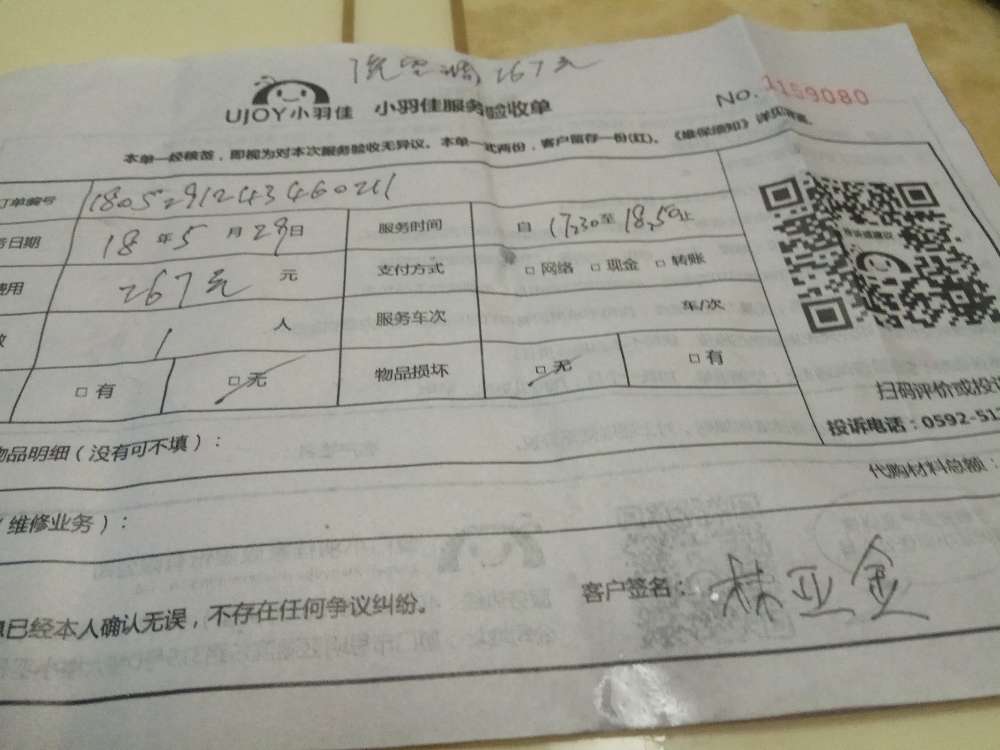 洗空调267元
UJOY小羽佳 小羽佳服务验收单
NO. 1159080
本单一经被签,即视为对本次服务验收无异议。本单一式两份,客户留存一份(红)。《维保须知》详见背面
订单编号 1805291243460211
务日期 18年5月29日 服务时间 自17:30至18:50止
费用 267元 元 支付方式 □网络 □现金 □转账
数 1 人 服务车次 车/次
□有 □无 物品损坏 □无 □有
扫码评价或投诉
投诉电话:0592-51
物品明细(没有可不填):
代购材料总额:
(维修业务):
息已经本人确认无误,不存在任何争议纠纷。
客户签名:林亚金